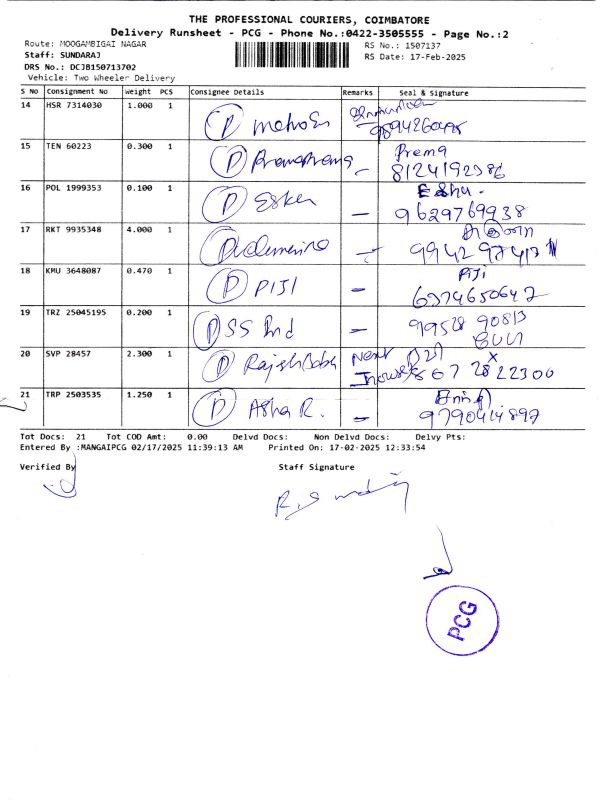 THE PROFESSIONAL COURIERS, COIMBATORE
Delivery Runsheet - PCG - Phone No.:0422-3505555 - Page No.:2
Route: MOOGAMBIGAI NAGAR RS No.: 1507137
Staff: SUNDARAJ RS Date: 17-Feb-2025
DRS No.: DCJB150713702
Vehicle: Two Wheeler Delivery
S No Consignment No Weight PCS Consignee Details Remarks Seal & Signature
14 HSR 7314030 1.000 1 D
15 TEN 60223 0.300 1 D Prema
8124192386
16 POL 1999353 0.100 1 D –
9629769938
17 RKT 9935348 4.000 1 D
18 KMU 3648087 0.470 1 D PIJI – PIJI
6374650647
19 TRZ 25045195 0.200 1 D SS Ind –
99528 90813
20 SVP 28457 2.300 1 D Rajesh Babu Next
21 TRP 2503535 1.250 1 D Asha R. –
Tot Docs: 21 Tot COD Amt: 0.00 Delvd Docs: Non Delvd Docs: Delvy Pts:
Entered By :MANGAIPCG 02/17/2025 11:39:13 AM Printed On: 17-02-2025 12:33:54
Verified By Staff Signature
PCG